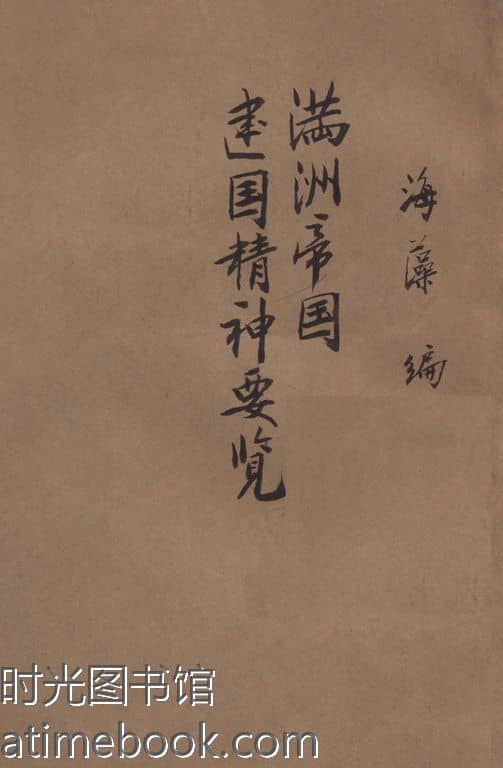 海藻 编
满洲帝国
建国精神要览
时光图书馆
atimebook.com